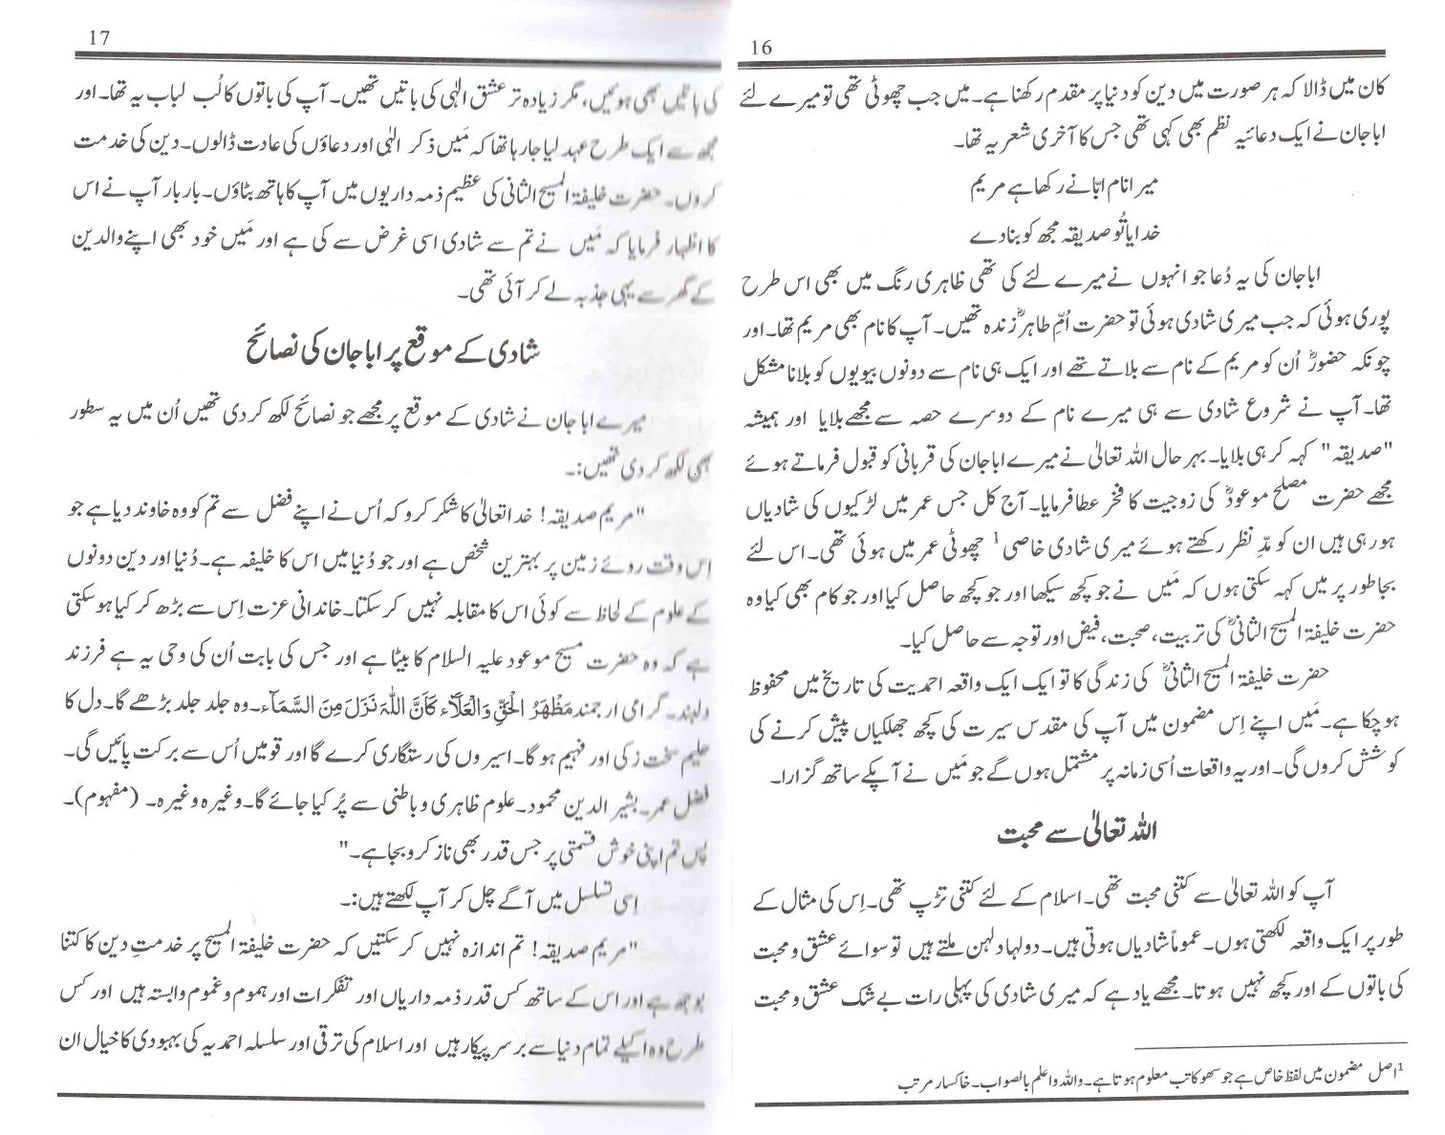 16
کان میں ڈالا کہ ہر صورت میں دین کو دنیا پر مقدم رکھنا ہے۔ میں جب چھوٹی تھی تو میرے لئے
ابا جان نے ایک دعائیہ نظم بھی کہی تھی جس کا آخری شعر یہ تھا۔
میرا نام ابّا نے رکھا ہے مریم
خدایا تُو صدیقہ مجھ کو بنا دے
ابا جان کی یہ دُعا جو انہوں نے میرے لئے کی تھی ظاہری رنگ میں بھی اس طرح
پوری ہوئی کہ جب میری شادی ہوئی تو حضرت اُمّ طاہرؓ زندہ تھیں۔ آپ کا نام بھی مریم تھا۔ اور
چونکہ حضورؓ اُن کو مریم کے نام سے بلاتے تھے اور ایک ہی نام سے دونوں بیویوں کو بلانا مشکل
تھا۔ آپ نے شروع شادی سے ہی میرے نام کے دوسرے حصہ سے مجھے بلایا اور ہمیشہ
"صدیقہ" کہہ کر ہی بلایا۔ بہر حال اللہ تعالیٰ نے میرے ابا جان کی قربانی کو قبول فرماتے ہوئے
مجھے حضرت مصلح موعودؓ کی زوجیت کا فخر عطا فرمایا۔ آج کل جس عمر میں لڑکیوں کی شادیاں
ہو رہی ہیں ان کو مدِّ نظر رکھتے ہوئے میری شادی خاصی¹ چھوٹی عمر میں ہوئی تھی۔ اس لئے
بجا طور پر میں کہہ سکتی ہوں کہ مَیں نے جو کچھ سیکھا اور جو کچھ حاصل کیا اور جو کام بھی کیا وہ
حضرت خلیفۃ المسیح الثانیؓ کی تربیت، صحبت، فیض اور توجہ سے حاصل کیا۔
حضرت خلیفۃ المسیح الثانیؓ کی زندگی کا تو ایک ایک واقعہ احمدیت کی تاریخ میں محفوظ
ہو چکا ہے۔ مَیں اپنے اِس مضمون میں آپ کی مقدس سیرت کی کچھ جھلکیاں پیش کرنے کی
کوشش کروں گی۔ اور یہ واقعات اُسی زمانہ پر مشتمل ہوں گے جو مَیں نے آپکے ساتھ گزارا۔
اللہ تعالیٰ سے محبت
آپ کو اللہ تعالیٰ سے کتنی محبت تھی۔ اسلام کے لئے کتنی تڑپ تھی۔ اِس کی مثال کے
طور پر ایک واقعہ لکھتی ہوں۔ عموماً شادیاں ہوتی ہیں۔ دولہا دلہن ملتے ہیں تو سوائے عشق و محبت
کی باتوں کے اور کچھ نہیں ہوتا۔ مجھے یاد ہے کہ میری شادی کی پہلی رات بے شک عشق و محبت
¹اصل مضمون میں لفظ خاص ہے جو سہو کاتب معلوم ہوتا ہے۔ واللہ واعلم بالصواب۔ خاکسار مرتب
17
کی باتیں بھی ہوئیں، مگر زیادہ تر عشق الٰہی کی باتیں تھیں۔ آپ کی باتوں کا لُب لباب یہ تھا۔ اور
مجھ سے ایک طرح عہد لیا جا رہا تھا کہ مَیں ذکر الٰہی اور دعاؤں کی عادت ڈالوں۔ دین کی خدمت
کروں۔ حضرت خلیفۃ المسیح الثانی کی عظیم ذمہ داریوں میں آپ کا ہاتھ بٹاؤں۔ بار بار آپ نے اس
کا اظہار فرمایا کہ مَیں نے تم سے شادی اسی غرض سے کی ہے اور مَیں خود بھی اپنے والدین
کے گھر سے یہی جذبہ لے کر آئی تھی۔
شادی کے موقع پر ابا جان کی نصائح
میرے ابا جان نے شادی کے موقع پر مجھے جو نصائح لکھ کر دی تھیں اُن میں یہ سطور
بھی لکھ کر دی تھیں:۔
"مریم صدیقہ! خدا تعالیٰ کا شکر کرو کہ اُس نے اپنے فضل سے تم کو وہ خاوند دیا ہے جو
اس وقت روئے زمین پر بہترین شخص ہے اور جو دُنیا میں اس کا خلیفہ ہے۔ دُنیا اور دین دونوں
کے علوم کے لحاظ سے کوئی اس کا مقابلہ نہیں کر سکتا۔ خاندانی عزت اِس سے بڑھ کر کیا ہو سکتی
ہے کہ وہ حضرت مسیح موعود علیہ السلام کا بیٹا ہے اور جس کی بابت اُن کی وحی یہ ہے فرزند
دلبند۔ گرامی ارجمند مَظْهَرُ الْحَقِّ وَالْعَلَآءِ كَاَنَّ اللّٰهَ نَزَلَ مِنَ السَّمَآءِ۔ وہ جلد جلد بڑھے گا۔ دل کا
حلیم سخت زکی اور فہیم ہو گا۔ اسیروں کی رستگاری کرے گا اور قومیں اُس سے برکت پائیں گی۔
فضل عمر۔ بشیر الدین محمود۔ علوم ظاہری و باطنی سے پُر کیا جائے گا۔ وغیرہ وغیرہ۔ (مفہوم)۔
پس تم اپنی خوش قسمتی پر جس قدر بھی ناز کرو بجا ہے۔"
اِسی تسلسل میں آگے چل کر آپ لکھتے ہیں:۔
"مریم صدیقہ! تم اندازہ نہیں کر سکتیں کہ حضرت خلیفۃ المسیح پر خدمتِ دین کا کتنا
بوجھ ہے اور اس کے ساتھ کس قدر ذمہ داریاں اور تفکرات اور ہموم و غموم وابستہ ہیں اور کس
طرح وہ اکیلے تمام دنیا سے برسرِ پیکار ہیں اور اسلام کی ترقی اور سلسلہ احمدیہ کی بہبودی کا خیال ان